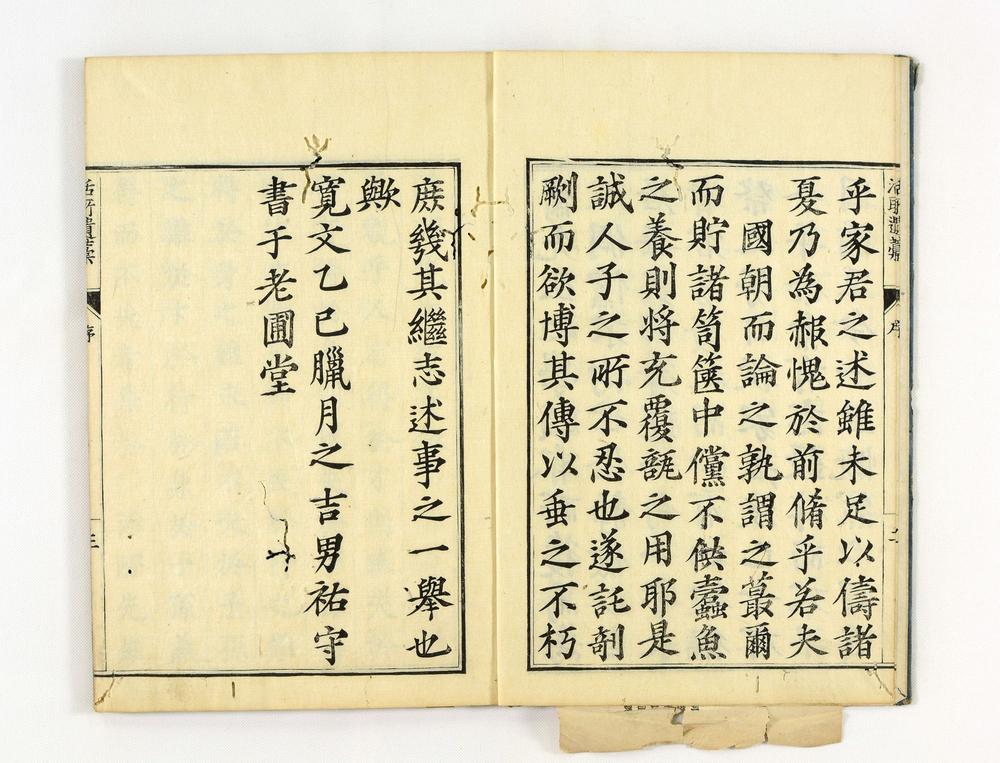 乎家君之述雖未足以儔諸
夏乃為赧愧於前脩乎若夫
國朝而論之孰謂之蕞爾
而貯諸笥篋中儻不供蠹魚
之養則將充覆瓿之用耶是
誠人子之所不忍也遂託剞
劂而欲博其傳以垂之不朽
庶幾其繼志述事之一舉也
歟
寬文乙巳臘月之吉男祐守
書于老圃堂
活所遺藁
序
二
活所遺藁
序
三